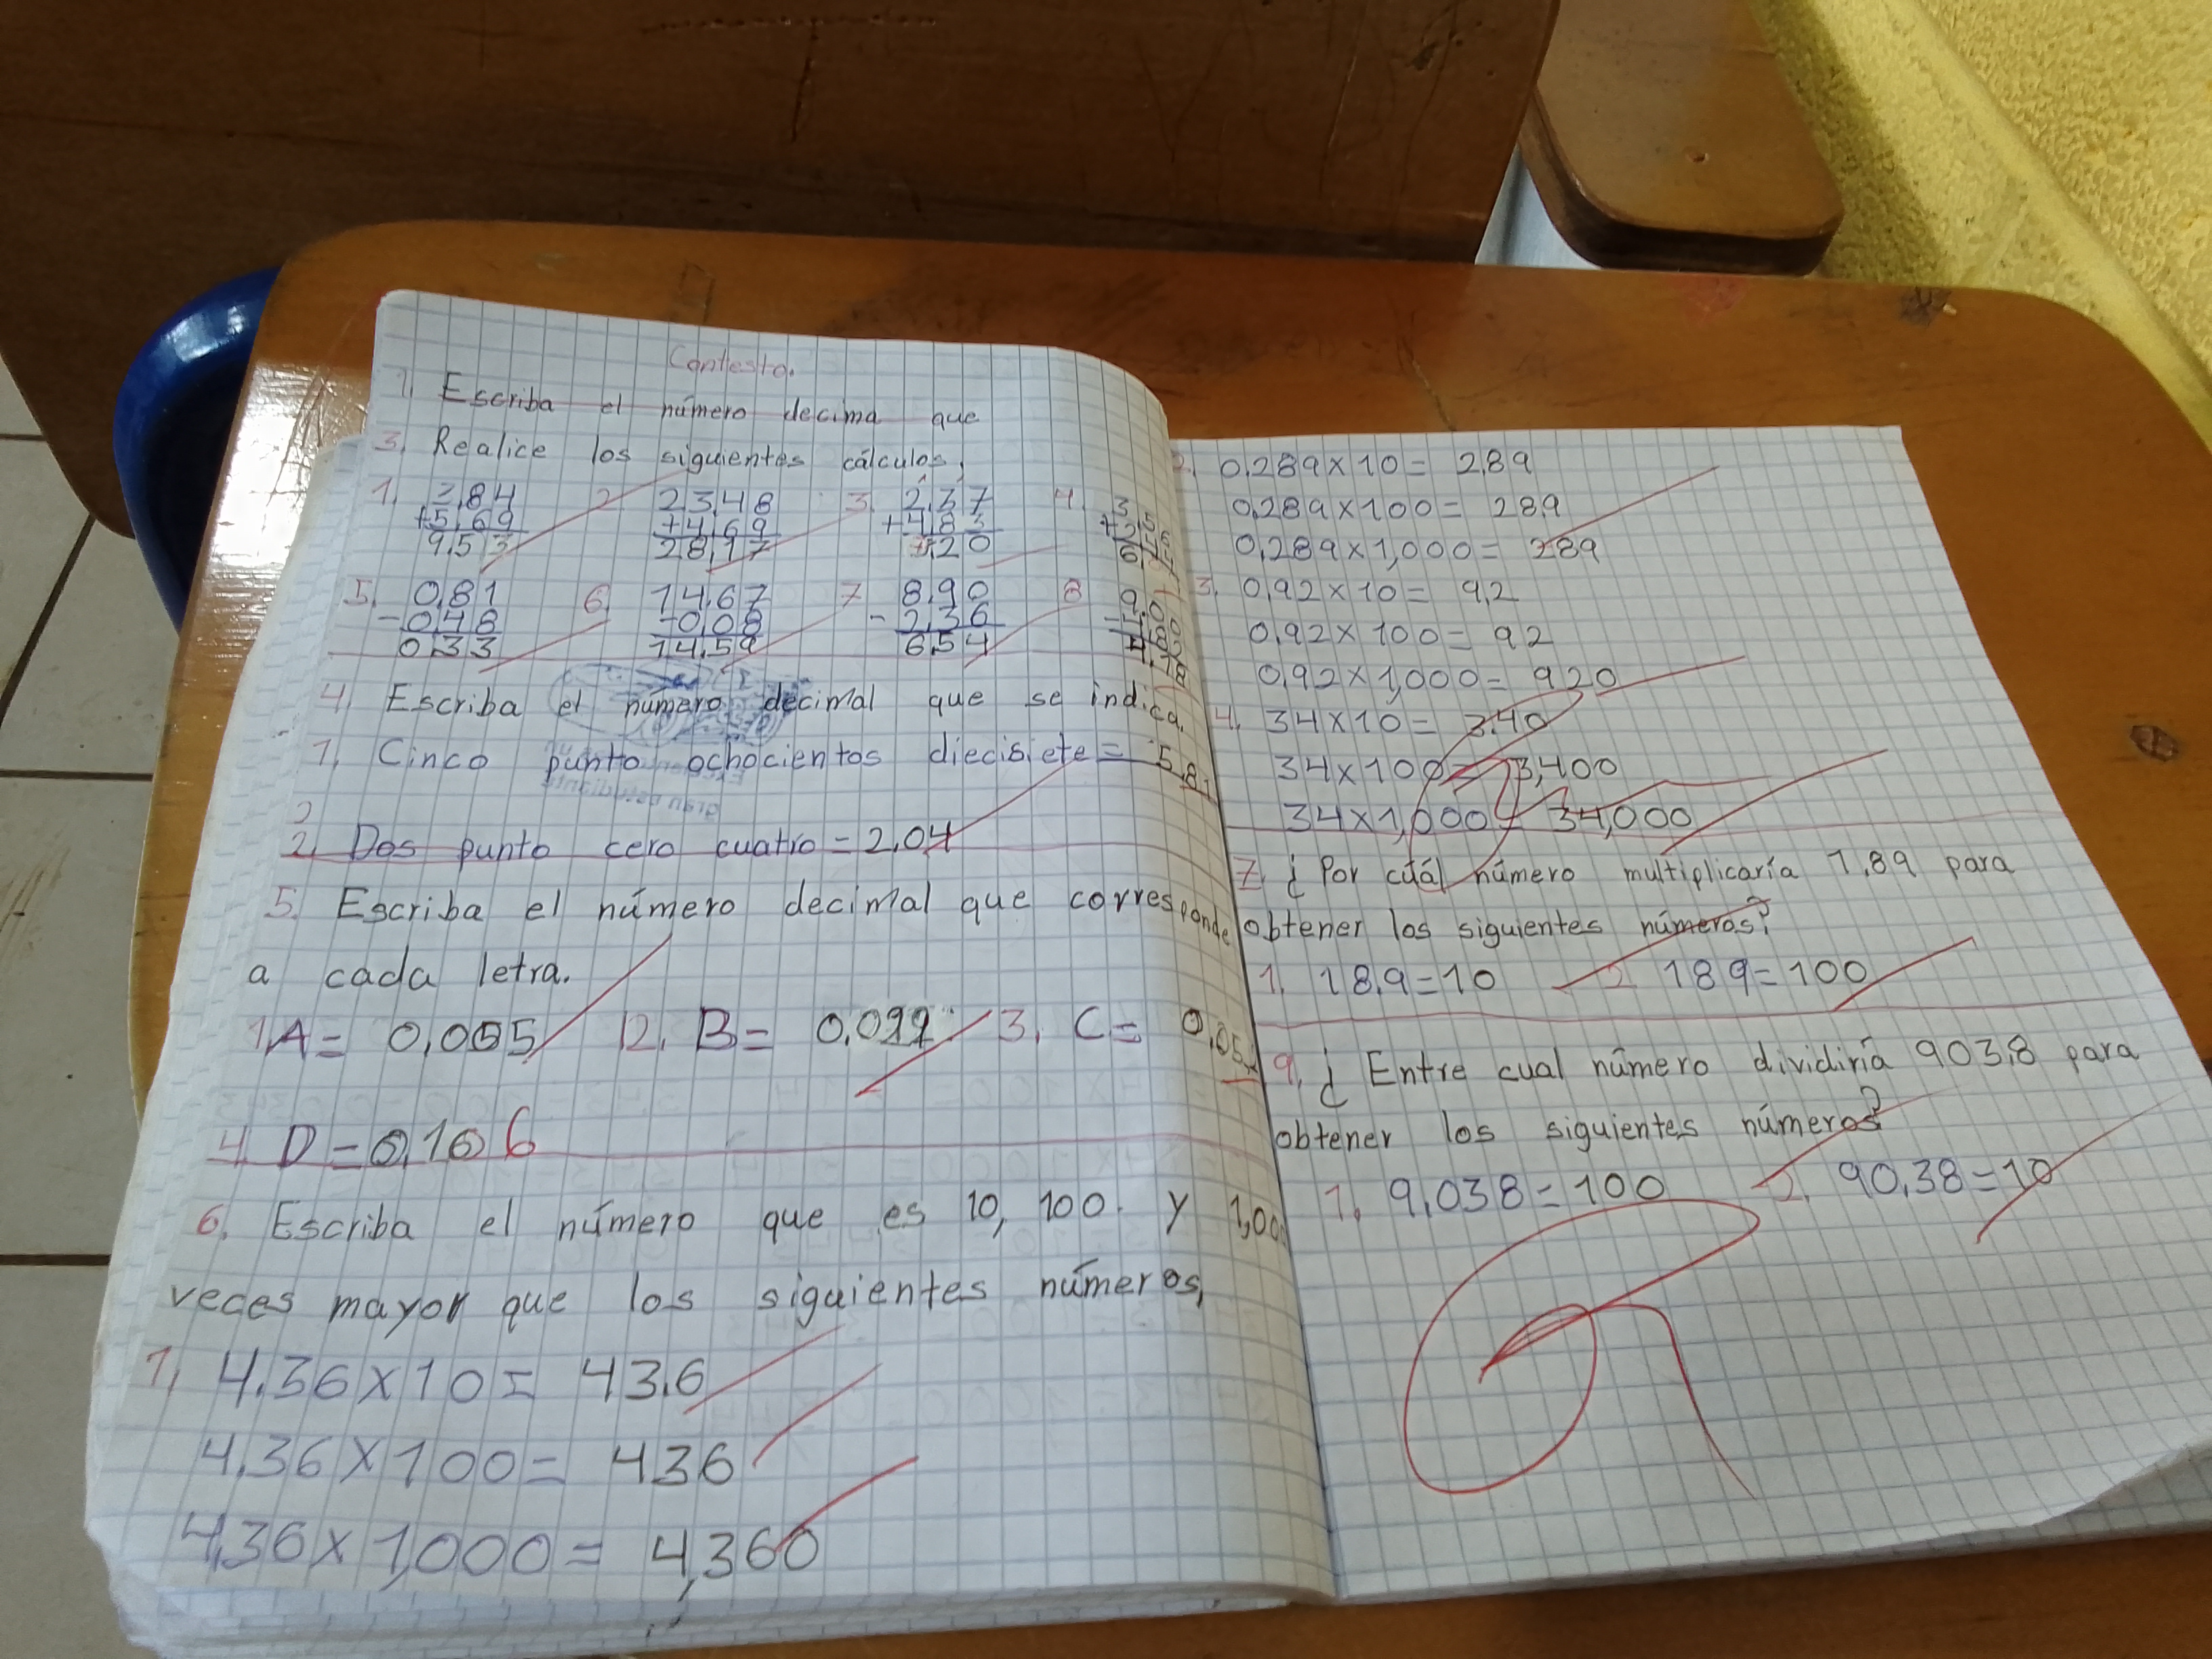 Contesto.
1. Escriba el número decima que
3. Realice los siguientes cálculos.
1. 3,84 2. 23,48 3. 2,37 4.
+5,69 +4,69 +4,83
9,53 28,17 7,20
5. 0,81 6. 14,67 7 8,90 8
-0,48 -0,08 - 2,36
0,33 14,59 6,54
4. Escriba el número decimal que se indica.
1. Cinco punto ochocientos diecisiete = 5,81
2
2. Dos punto cero cuatro = 2,04
5. Escriba el número decimal que corresponde
a cada letra.
1. A = 0,005 2. B = 3. C = 0,05
4. D = 0,106
6. Escriba el número que es 10, 100 y 1,000
veces mayor que los siguientes números,
1. 4.36 x 10 = 43.6
4.36 x 100 = 436
4.36 x 1,000 = 4,360
2. 0.289 x 10 = 2.89
0.289 x 100 = 28.9
0.289 x 1,000 = 289
3. 0.92 x 10 = 9.2
0.92 x 100 = 92
0.92 x 1,000 = 920
4. 34 x 10 = 3.40
34 x 100 = 3,400
34 x 1,000 = 34,000
7. ¿Por cuál número multiplicaría 1.89 para
obtener los siguientes números?
1. 18.9 = 10 2. 189 = 100
9. ¿Entre cual número dividiría 903.8 para
obtener los siguientes números?
1. 9.038 = 100 2. 90.38 = 10